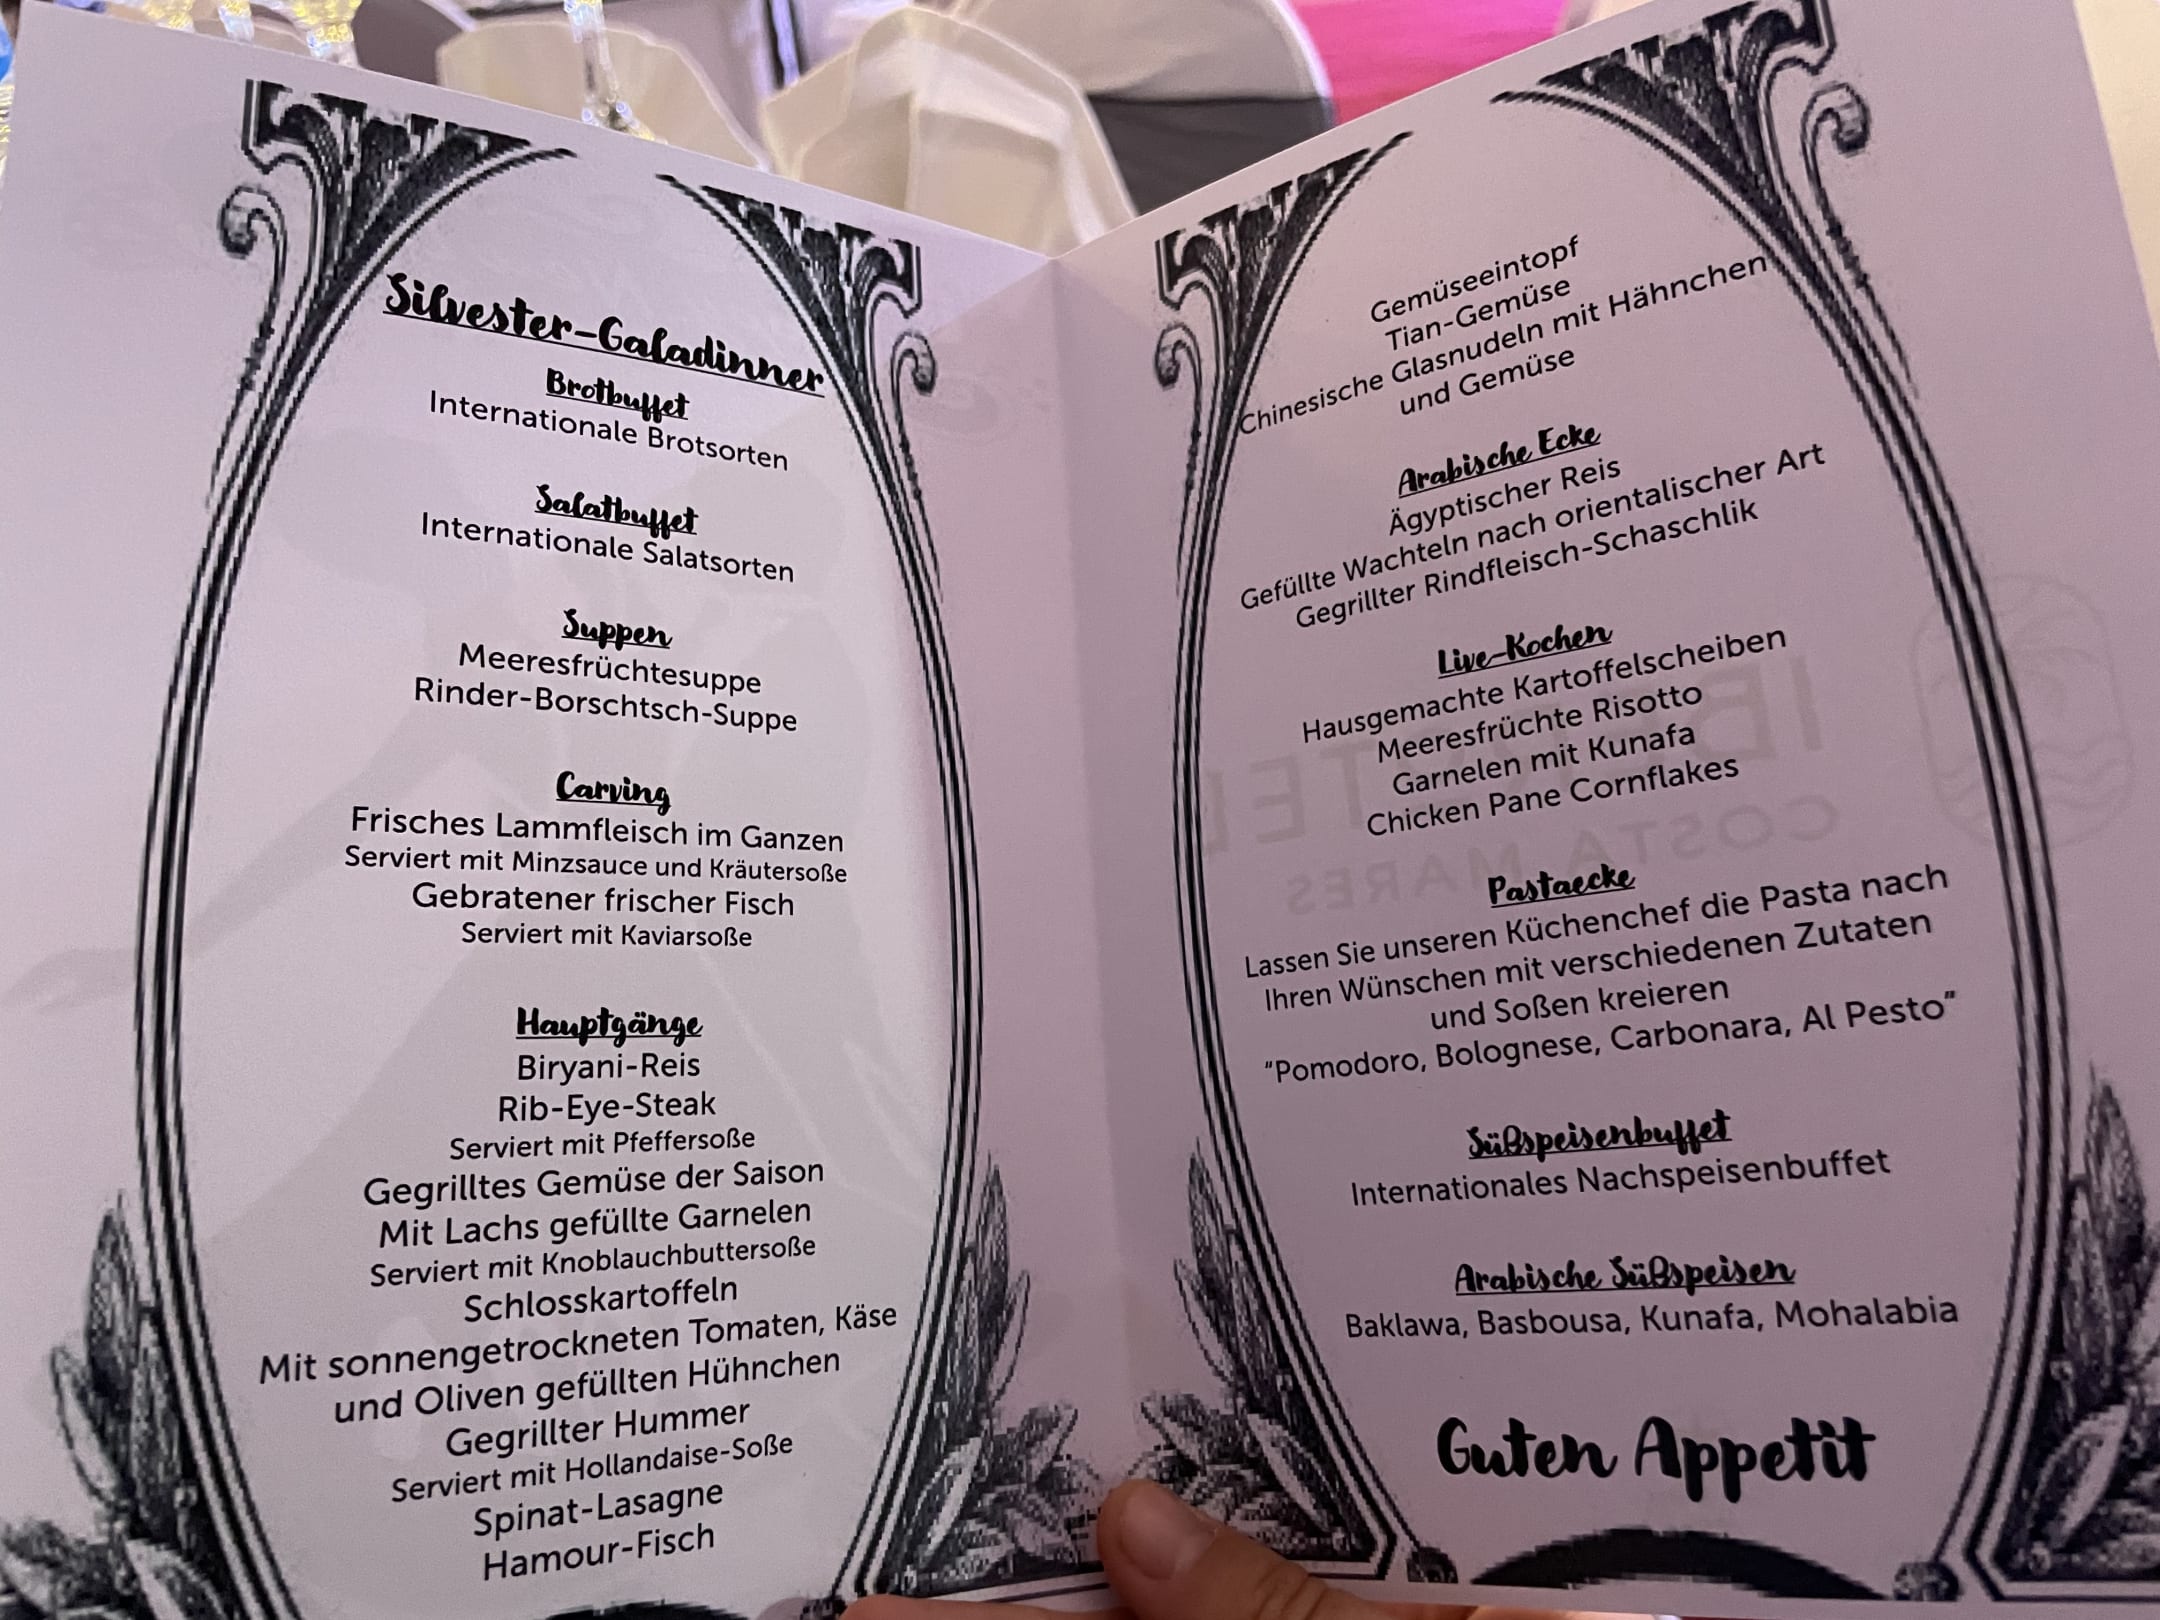 Silvester-Galadinner
Brotbuffet
Internationale Brotsorten
Salatbuffet
Internationale Salatsorten
Suppen
Meeresfrüchtesuppe
Rinder-Borschtsch-Suppe
Carving
Frisches Lammfleisch im Ganzen
Serviert mit Minzsauce und Kräutersoße
Gebratener frischer Fisch
Serviert mit Kaviarsoße
Hauptgänge
Biryani-Reis
Rib-Eye-Steak
Serviert mit Pfeffersoße
Gegrilltes Gemüse der Saison
Mit Lachs gefüllte Garnelen
Serviert mit Knoblauchbuttersoße
Schlosskartoffeln
Mit sonnengetrockneten Tomaten, Käse
und Oliven gefüllten Hühnchen
Gegrillter Hummer
Serviert mit Hollandaise-Soße
Spinat-Lasagne
Hamour-Fisch
Gemüseeintopf
Tian-Gemüse
Chinesische Glasnudeln mit Hähnchen
und Gemüse
Arabische Ecke
Ägyptischer Reis
Gefüllte Wachteln nach orientalischer Art
Gegrillter Rindfleisch-Schaschlik
Live-Kochen
Hausgemachte Kartoffelscheiben
Meeresfrüchte Risotto
Garnelen mit Kunafa
Chicken Pane Cornflakes
Pastaecke
Lassen Sie unseren Küchenchef die Pasta nach
Ihren Wünschen mit verschiedenen Zutaten
und Soßen kreieren
"Pomodoro, Bolognese, Carbonara, Al Pesto"
Süßspeisenbuffet
Internationales Nachspeisenbuffet
Arabische Süßspeisen
Baklawa, Basbousa, Kunafa, Mohalabia
Guten Appetit
COSTA MARES